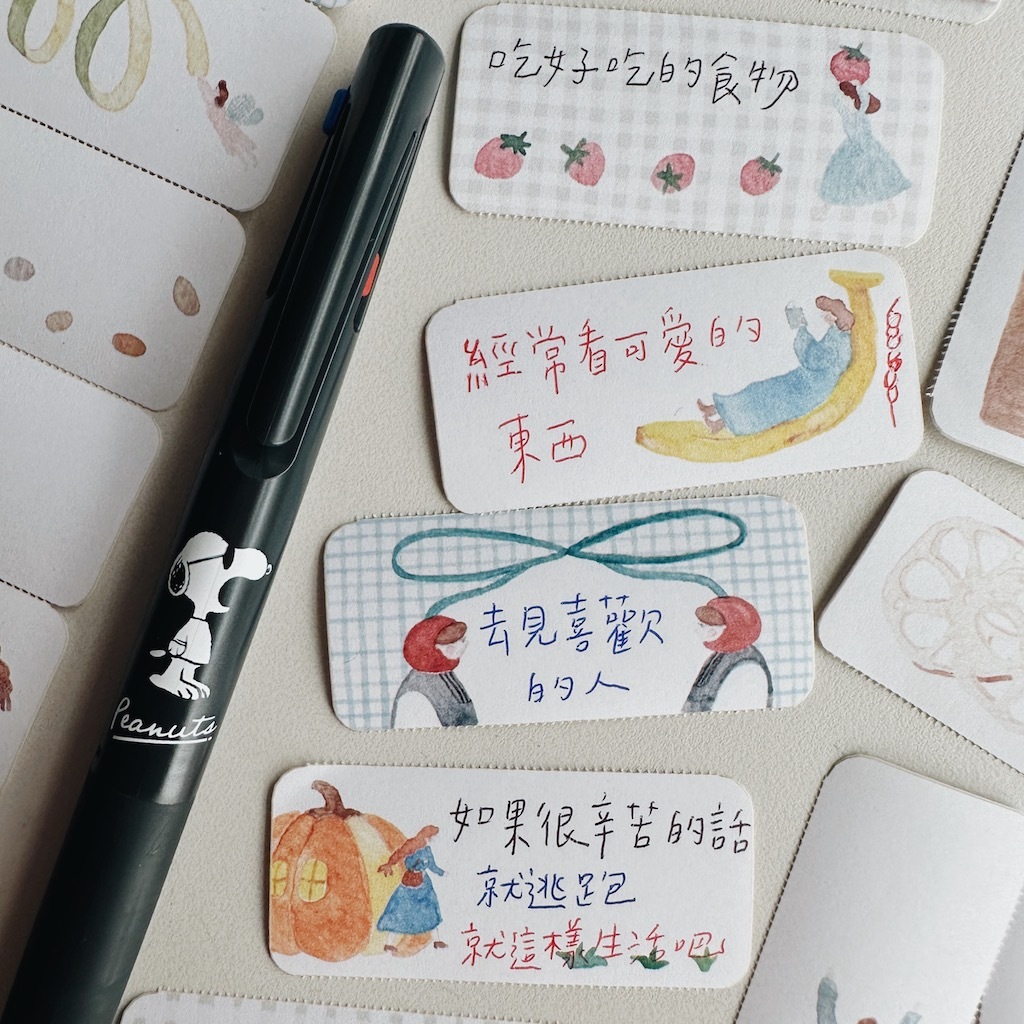 吃好吃的食物
經常看可愛的
東西
去見喜歡
的人
如果很辛苦的話
就逃跑
就這樣生活吧
Peanuts